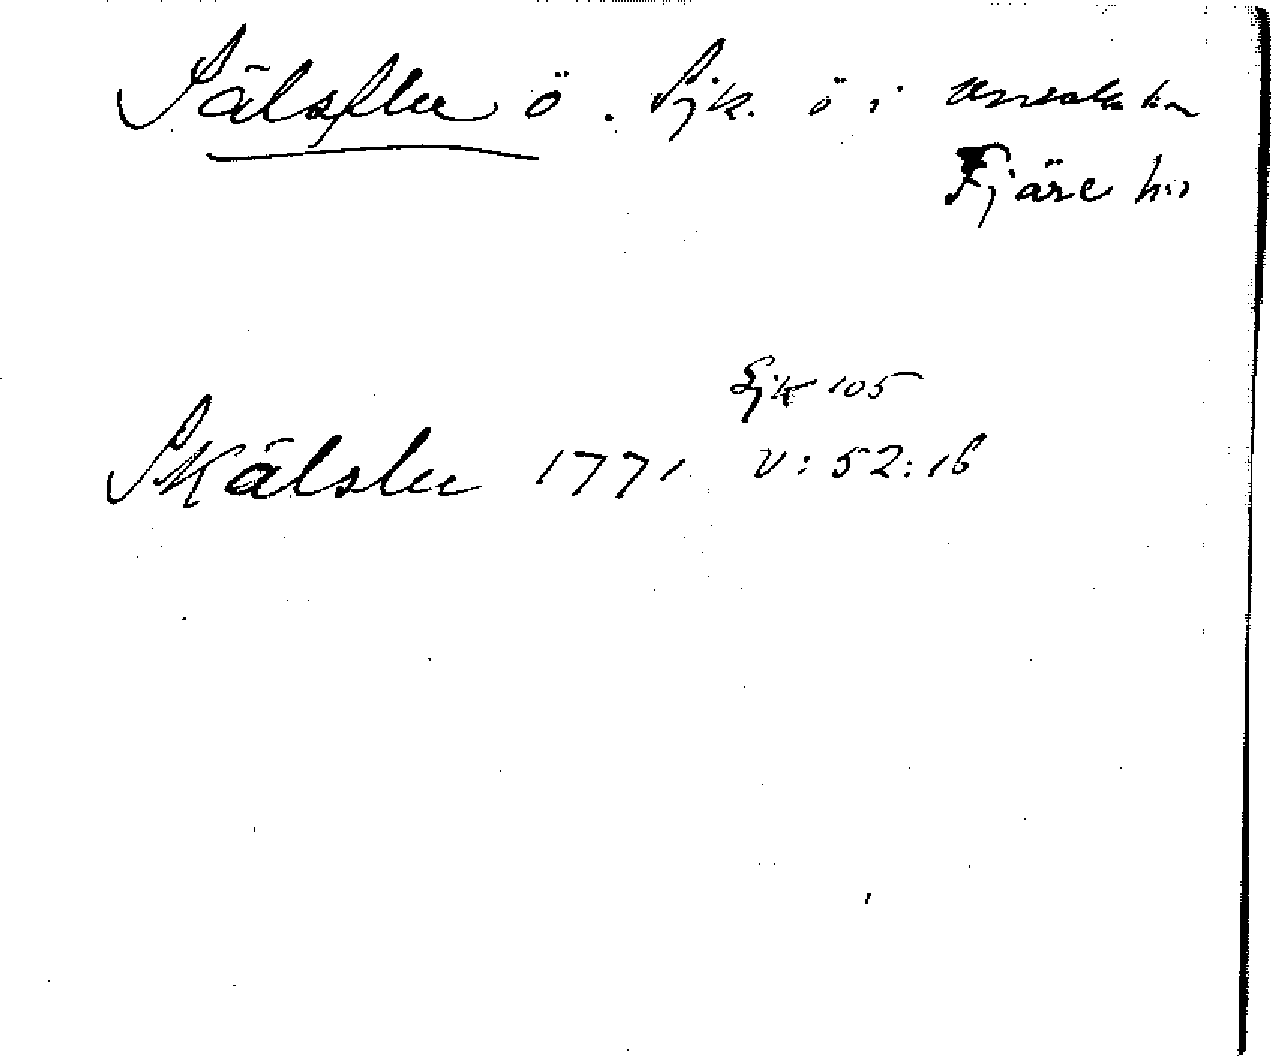 Sälsflu ö. Sjk. ö i Onsala sn
Fjäre hd
Sjk 105
Skälslu 1771 V: 52: 16